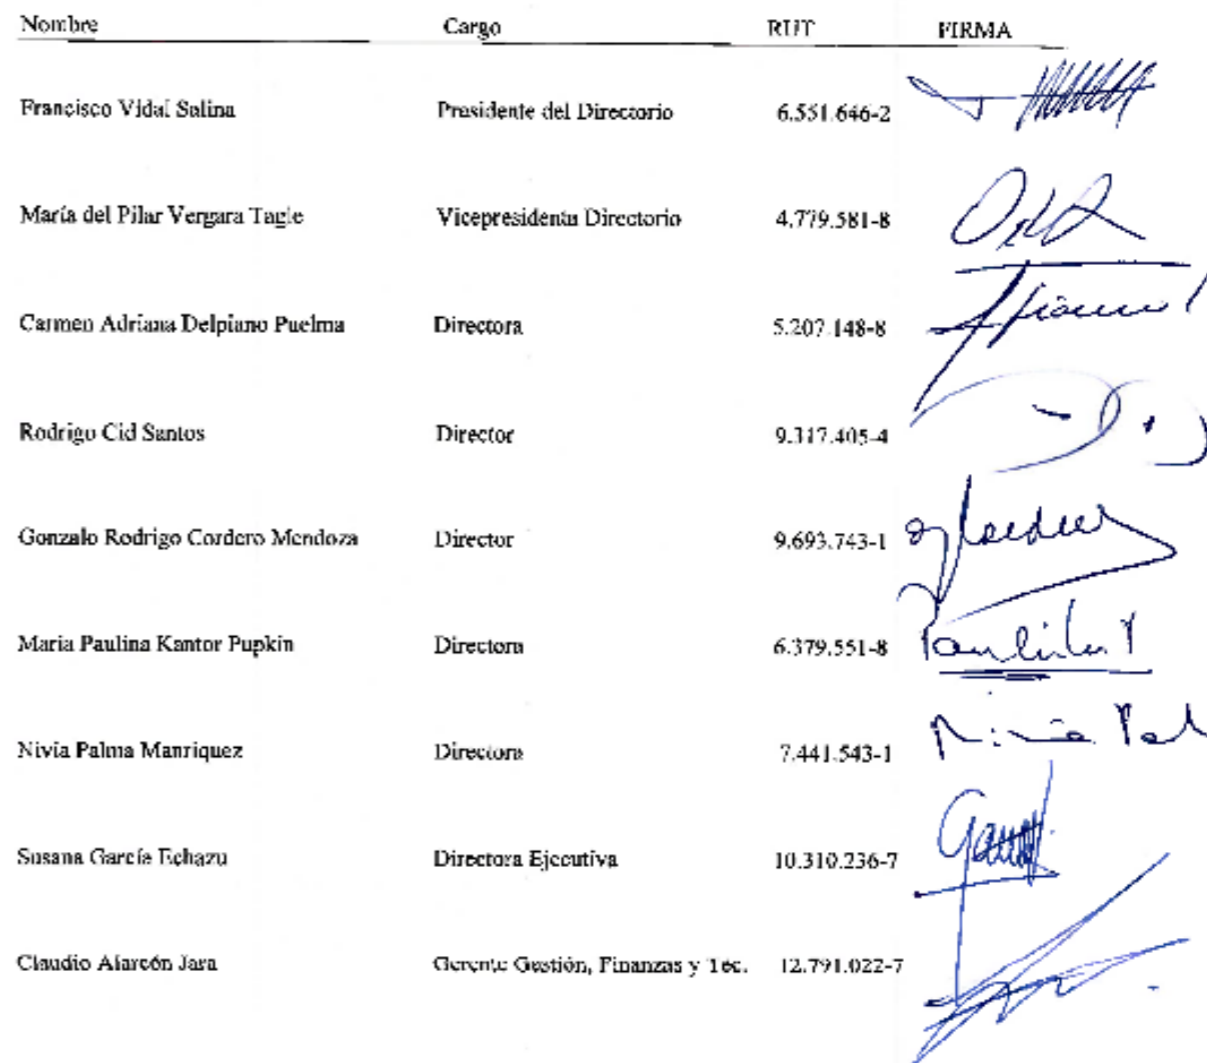 Nombre Cargo RUT FIRMA
Francisco Vidal Salina Presidente del Directorio 6.551.646-2
María del Pilar Vergara Tagle Vicepresidenta Directorio 4.779.581-8
Carmen Adriana Delpiano Puelma Directora 5.207.148-8
Rodrigo Cid Santos Director 9.317.405-4
Gonzalo Rodrigo Cordero Mendoza Director 9.693.743-1
Maria Paulina Kantor Pupkin Directora 6.379.551-8
Nivia Palma Manriquez Directora 7.441.543-1
Nivia Pal
Susana García Echazu Directora Ejecutiva 10.310.236-7
Claudio Alarcón Jara Gerente Gestión, Finanzas y Tec. 12.791.022-7